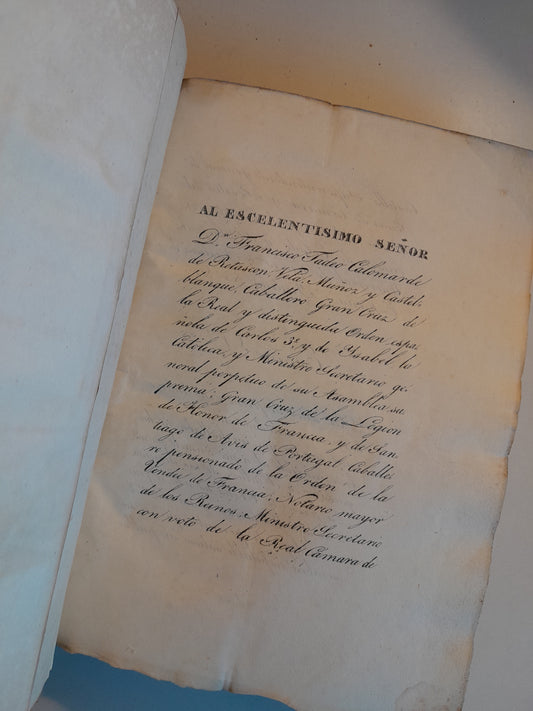 AL ESCELENTISIMO SEÑOR
D.ⁿ Francisco Tadeo Calomarde
de Retascon Vela, Muñoz y Castel-
blanque, Caballero Gran Cruz de
la Real y distinguida Orden espa-
ñola de Carlos 3º y de Ysabel la
Católica, y Ministro Secretario ge-
neral perpetuo de su Asamblea su-
prema: Gran Cruz de la Legion
de Honor de Francia, y de San-
tiago de Avis de Portugal: Caballe-
ro pensionado de la Orden de la
Vendée de Francia: Notario mayor
de los Reinos: Ministro Secretario
con voto de la Real Cámara de